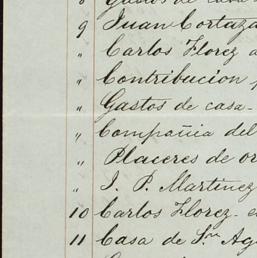 8 Gastos de casa
9 Juan Cortaza
" Carlos Florez
" Contribucion
" Gastos de casa-
" Compañia del
" Placeres de or
" I. P. Martinez
10 Carlos Florez
11 Casa de Sn Ag